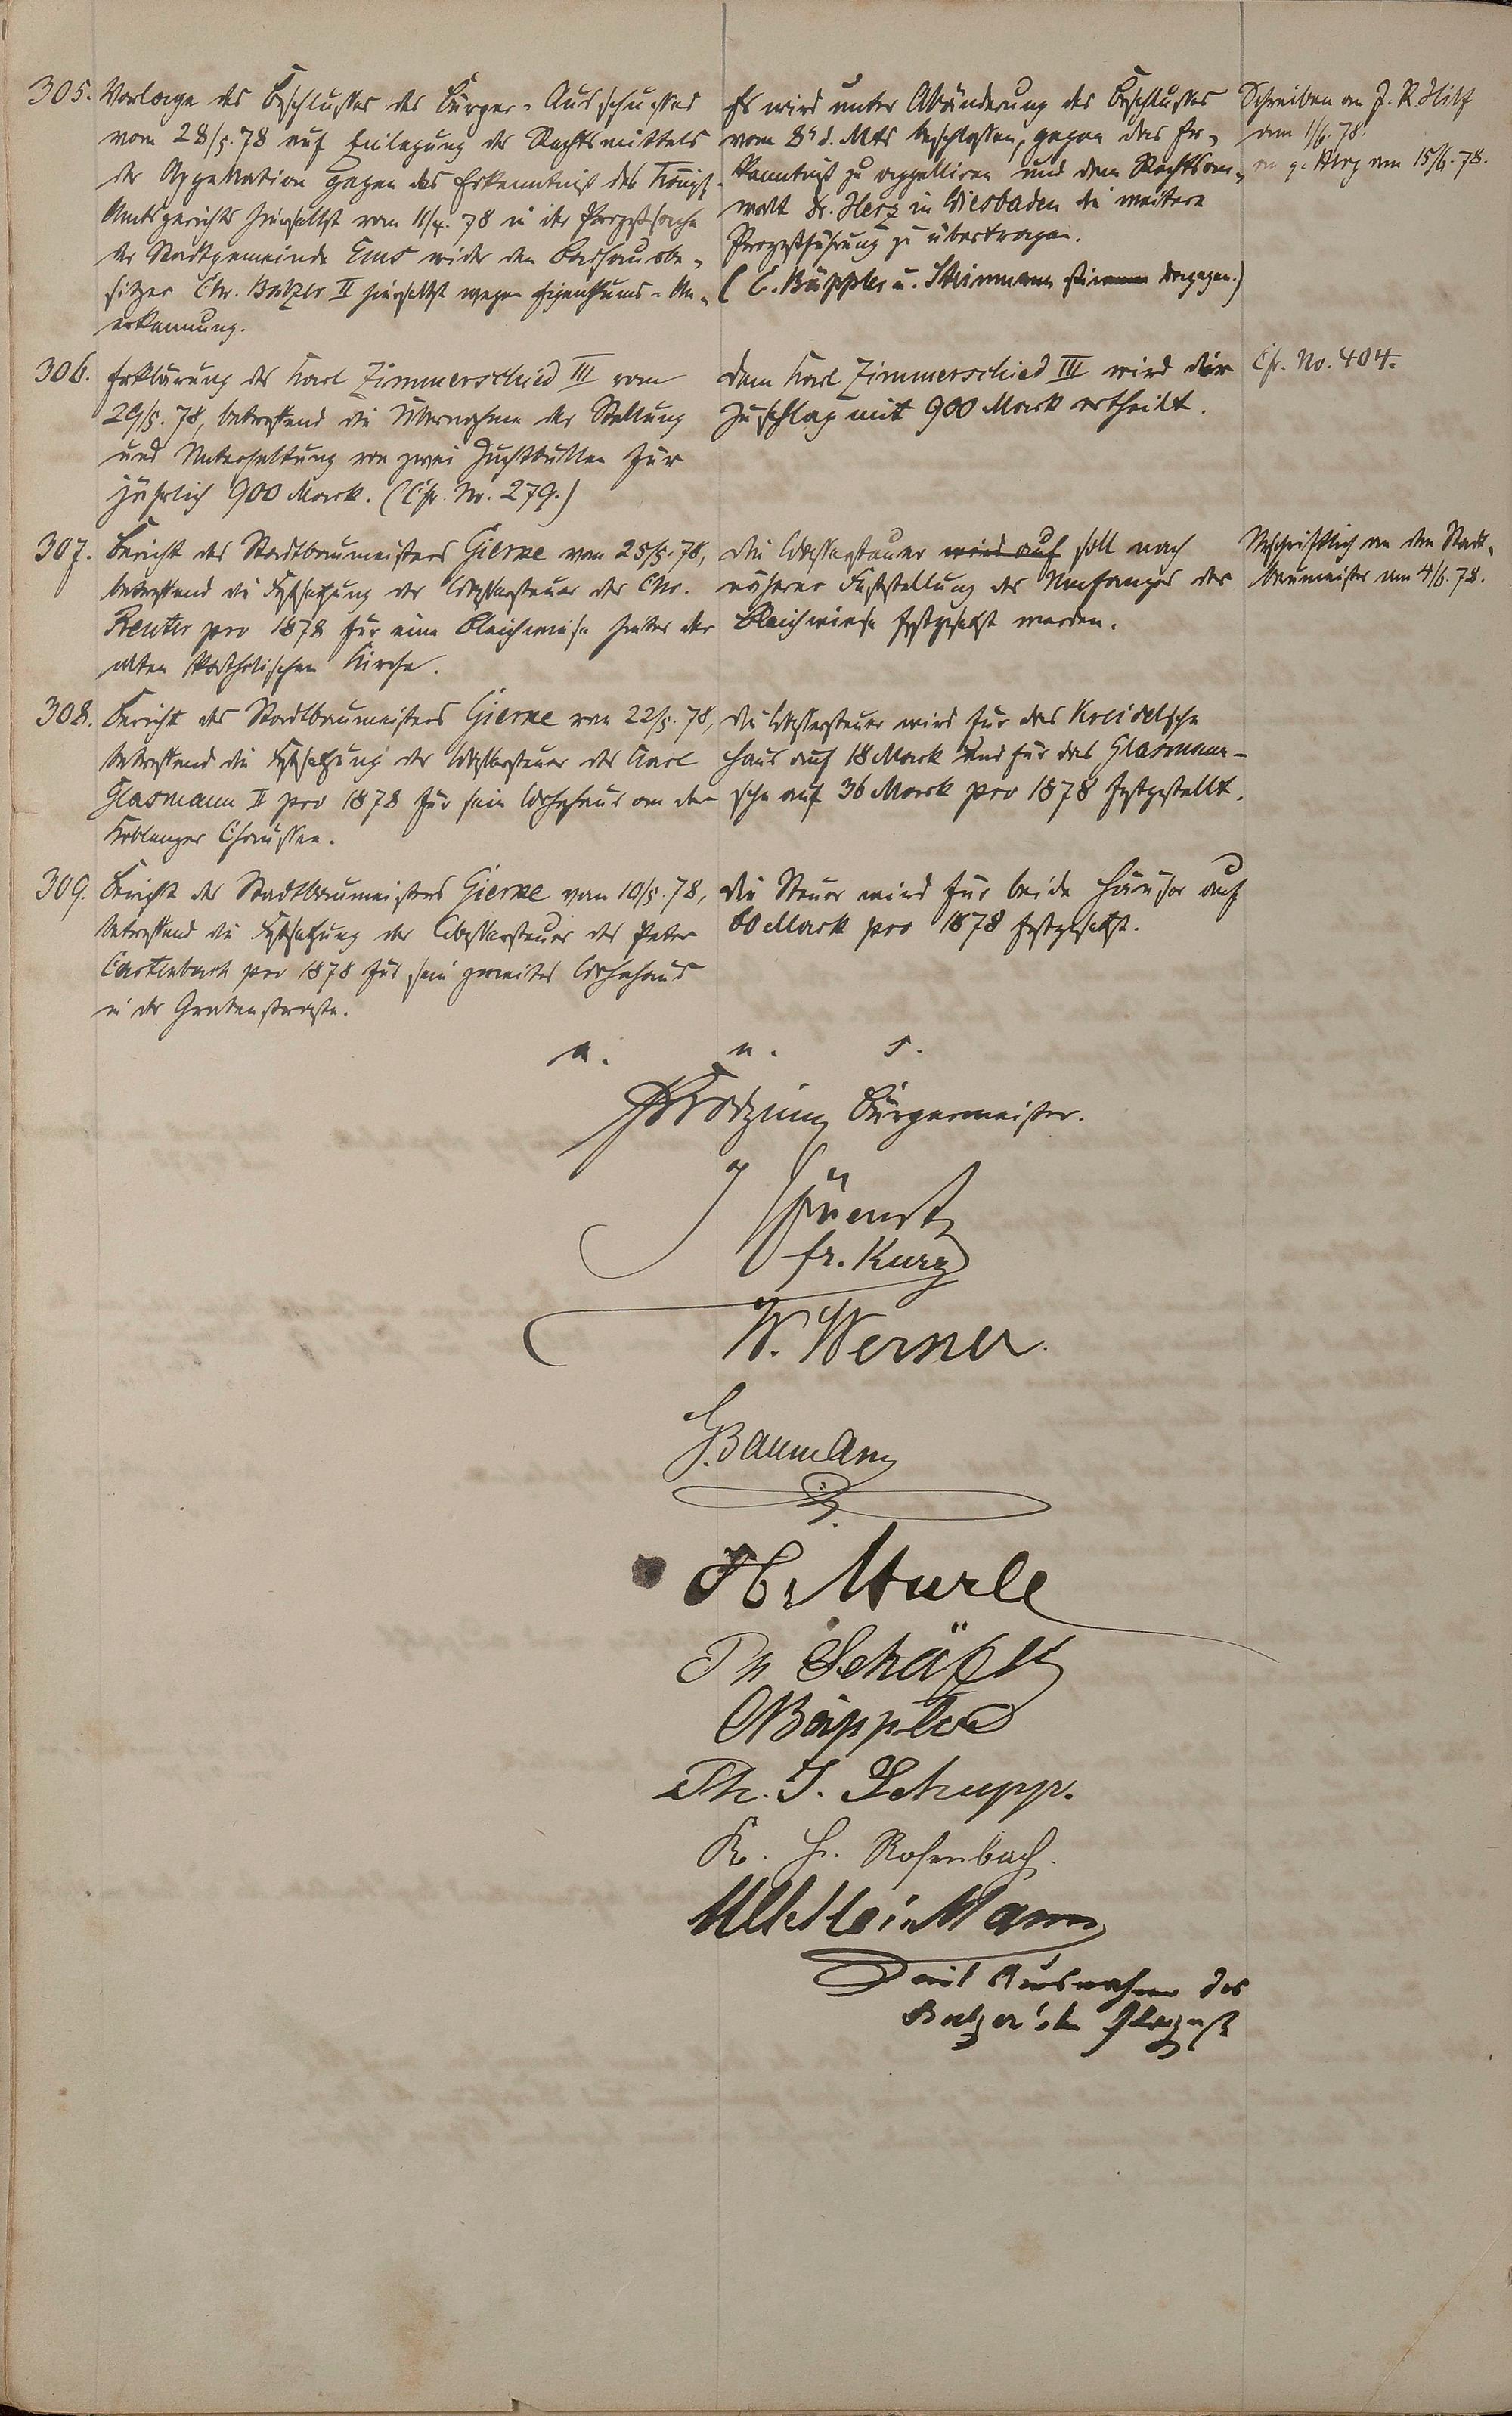 305. Vorlage des Beschlusses des Bürger-Ausschusses
vom 28/5. 78 auf Einlegung des Rechtsmittels
der Appellation gegen das Erkenntniß des Königl.
Amtsgerichts hierselbst vom 11/4. 78 in der Prozeßsache
der Stadtgemeinde Ems wider den Badhausbe-
sitzer Chr. Balzer II hierselbst wegen Eigenthums-An-
erkennung.
Es wird unter Abänderung des Beschlusses
vom 8t d. Mts beschlossen, gegen das Er-
kenntniß zu appelliren und dem Rechtsan-
walt Dr. Herz in Wiesbaden die weitere
Prozeßführung zu übertragen.
(C. Bäppler u. Steinmann stimmen dagegen.)
Schreiben an J. R. Hilf
vom 11/6. 78.
am 15/6. 78.
306. Erklärung des Karl Zimmerschied III vom
29/5. 78, betreffend die Übernahme der Stellung
und Unterhaltung von zwei Zuchtbullen für
jährlich 900 Mark. (Cfr. No. 279.)
Dem Karl Zimmerschied III wird der
Zuschlag mit 900 Mark ertheilt.
Cfr. No. 404.
307. Bericht des Stadtbaumeisters Gierne vom 25/5. 78,
betreffend die Festsetzung der Wassersteuer der Chr.
Reuter pro 1878 für eine Bleichwiese hinter der
alten katholischen Kirche.
Die Wassersteuer wird auf soll nach
näherer Feststellung des Umfanges der
Bleichwiese festgesetzt werden.
Abschriftlich an den Stadt-
baumeister am 4/6. 78.
308. Bericht des Stadtbaumeisters Gierne vom 22/5. 78,
betreffend die Festsetzung der Wassersteuer des Karl
Glasmann II pro 1878 für sein Wohnhaus an der
Koblenzer Chaussee.
Die Wassersteuer wird für das Kreidelsche
Haus auf 18 Mark und für das Glasmann-
sche auf 36 Mark pro 1878 festgestellt.
309. Bericht des Stadtbaumeisters Gierne vom 10/5. 78,
betreffend die Festsetzung der Wassersteuer des Peter
Castenbach pro 1878 für sein zweites Wohnhaus
in der Grabenstraße.
Die Steuer wird für beide Häuser auf
60 Mark pro 1878 festgesetzt.
a. u. s.
Bürgermeister.
Fr. Kurz
W. Werner.
G. Baumann
H. Murle
Ph Schäfer
C Bäppler
Ph. J. Schupp.
K. H. Rosenbach.
Steinmann
mit Ausnahme des
Balzer'schen Prozeß